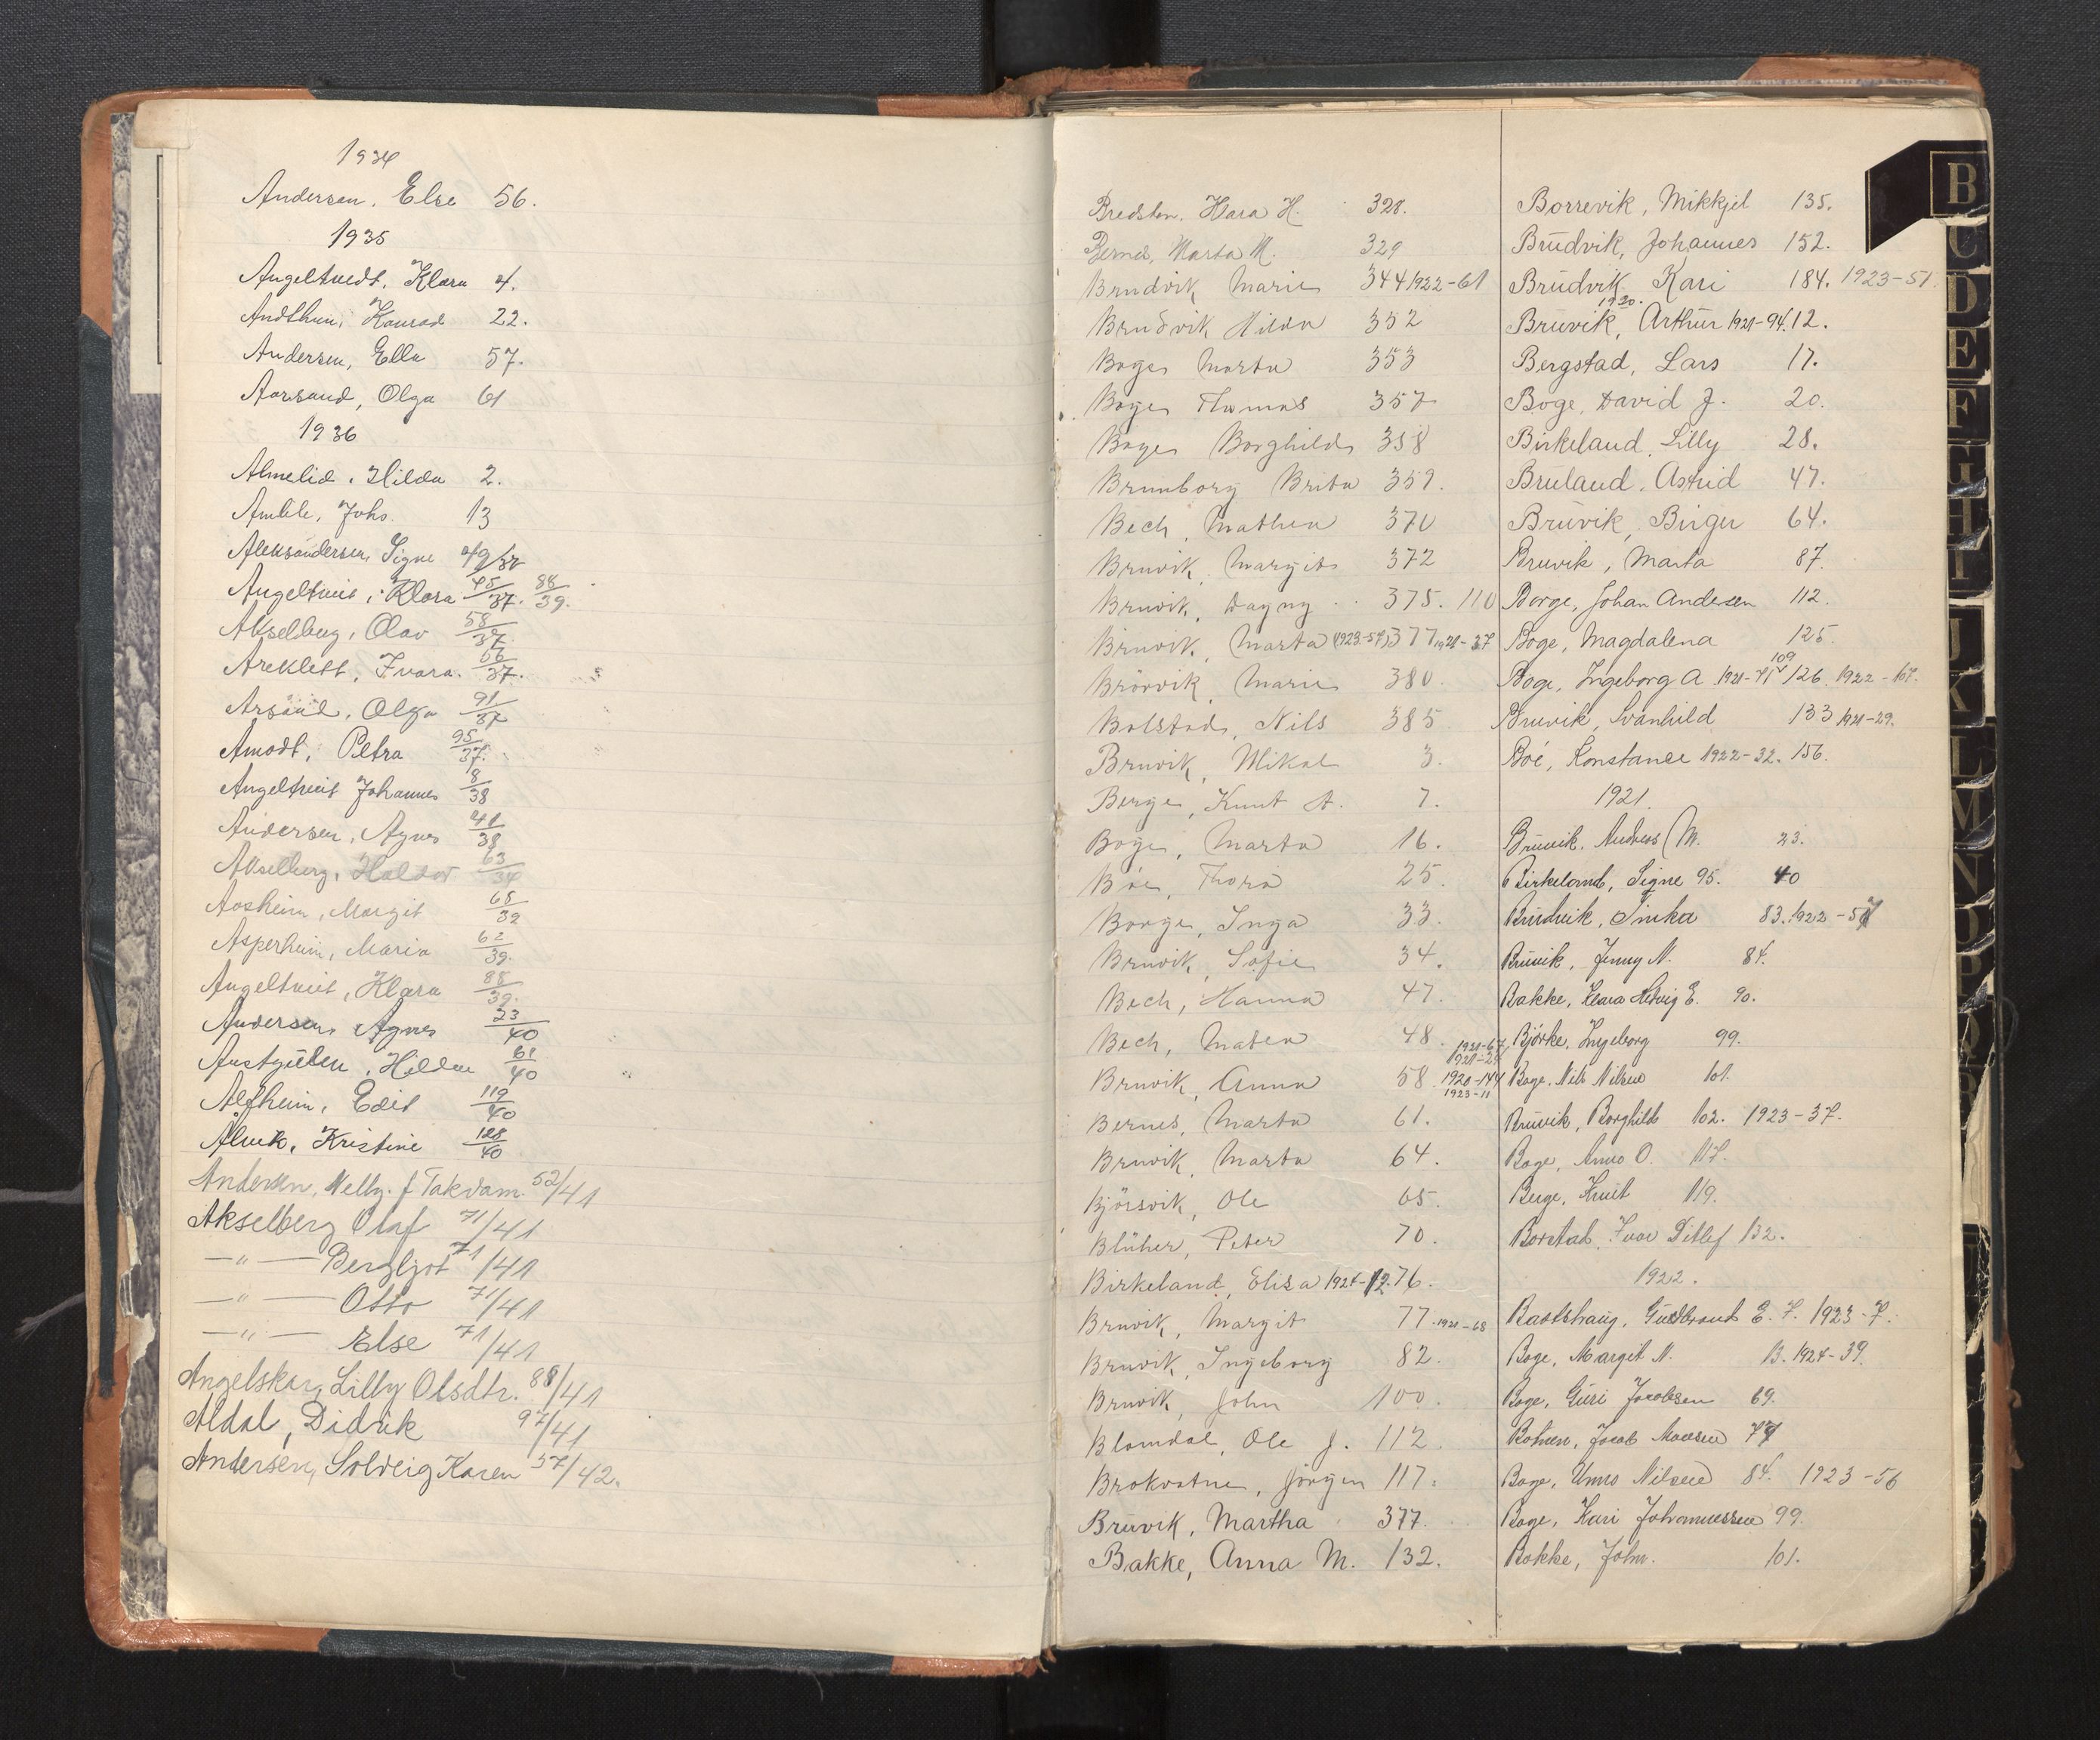 1934
Andersen, Else 56.
1935
Angeltvedt, Klara 4.
Andthun, Konrad 22.
Andersen, Ella 57.
Aarsand, Olga 61
1936
Almelid, Hilda 2.
Amble, Johs. 13
Aleksandersen, Signe 49/37
Angeltveit, Klara 45/37. 88/39.
Akselberg, Olav 58/37.
Areklett, Ivara. 56/37.
Arsand, Olga 91/37
Amodt, Petra 95/37.
Angeltveit Johannes 8/38
Andersen, Agnes 41/38
Akselberg, Haldor 63/34
Aasheim, Margit 65/39
Asperheim, Maria 62/39.
Angeltveit, Klara 88/39.
Andersen, Agnes 23/40
Austgulen, Hilda 61/40
Alfheim, Edit 119/40
Alvik, Kristine 128/40
Andersen, Nelly. f. Takvam. 52/41
Akselberg Olaf 71/41
—"— Bergljot 71/41
—"— Otto 71/41
—"— Else 71/41
Angelskar, Lilly Olsdtr. 88/41
Aldal, Didrik 97/41
Andersen, Solveig Karen 37/42.
Bredsten, Klara H. 328.
Bernes, Marta M. 329
Brudvik Marie 344 1922-61
Brudvik Hilda 352
Boge Marta 353
Boge Thomas 357
Boge Borghild 358
Brunborg Brita 359.
Bech, Mathea 370
Bruvik, Margit 372
Bruvik, Dagny 375. 110
Bruvik, Marta (1923-57) 377 1921-37
Brörvik Marie 380.
Bolstad, Nils 385
Bruvik, Mikal 3.
Berge, Knut A. 7.
Boge, Marta 16.
Böe, Thora 25.
Borge, Inga 33.
Bruvik, Sofie 34.
Bech, Hanna 47.
Bech, Matea 48.
1921-67
1921-25
Bruvik, Anna 58. 1920-144
1923-11
Bernes, Marta 61.
Bruvik, Marta 64.
Björsvik, Ole 65.
Blüher, Peter 70.
Birkeland, Elisa 1924-12. 76.
Bruvik, Margit 77. 1921-68
Bruvik, Ingeborg 82.
Bruvik, John 100.
Blomdal, Ole J. 112.
Brokvatne, Jörgen 117.
Bruvik, Martha 377.
Bakke, Anna M. 132.
B
C
D
E
F
G
H
I
J
K
L
M
N
O
P
R
Borrevik, Mikkjel 135.
Brudvik, Johannes 152.
Brudvik, Kari 184. 1923-51.
1920.
Bruvik, Arthur 1921-94. 12.
Bergstad, Lars 17.
Boge, David J. 20.
Birkeland, Lilly 28.
Bruland, Astrid 47.
Bruvik, Birger 64.
Bruvik, Marta 87.
Borge, Johan Andersen 112.
Boge, Magdalena 125.
109
Boge, Ingeborg A. 1921-71 126. 1922-67.
Bruvik, Svanhild 133 1921-29.
Boe, Konstance 1922-32. 156.
1921.
Bruvik, Andreas M. 23.
Birkeland, Signe 95. 40
Brudvik, Sinka 83. 1922-57
Bruvik, Jenny N. 84.
Bakke, Klara Helvig E. 90.
Björke, Ingeborg 99.
Boge, Nils Nilsen 101.
Bruvik, Borghild 102. 1923-37.
Boge, Anna O. 117.
Berge, Knut 119.
Borstad, Ivar Ditlef 132.
1922.
Bastshaug, Gudbrand E. 7. 1923-7.
Boge, Margit N. 13. 1924-39.
Boge, Guri Jacobsen 69.
Botnen, Jacob Monsen 77
Boge, Unni Nilsen 84. 1923-56
Boge, Kari Johannessen 99.
Bakke, John. 101.